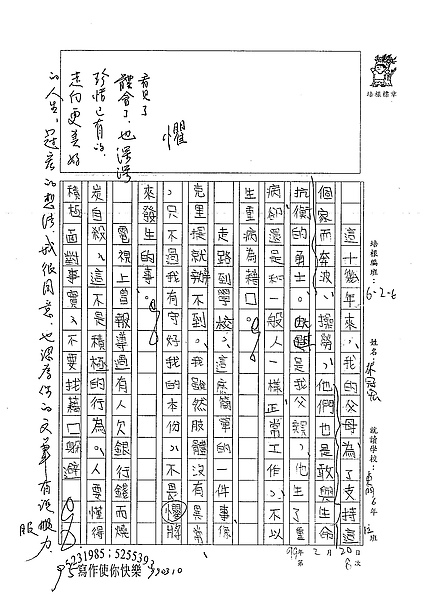 培根標章
培根編班：6-2-6
姓名：
就讀學校：東門6年 班
99年2月20日
第 次
這十幾年來，我的父母為了支持這
個家而奔波、操勞，他們也是敢與生命
抗衡的勇士。尤其是我父親，他生了重
病卻還是和一般人一樣正常工作，不以
生重病為藉口。
走路到學校，這麼簡單的一件事，像
克里提就辦不到。我雖然肢體沒有異常
，只不過我有守好我的本份，不畏懼將
來發生的事。
電視上曾報導過有人欠銀行錢而燒
炭自殺，這不是積極的行為。人要懂得
積極面對事實，不要找藉口躲避。
懼
看見了
體會了，也深深
珍惜已有的，
走向更美好
的人生，冠宏的想法我很同意，也深為你的文筆有說服力。
2231985；5255393
寫作使你快樂
990310